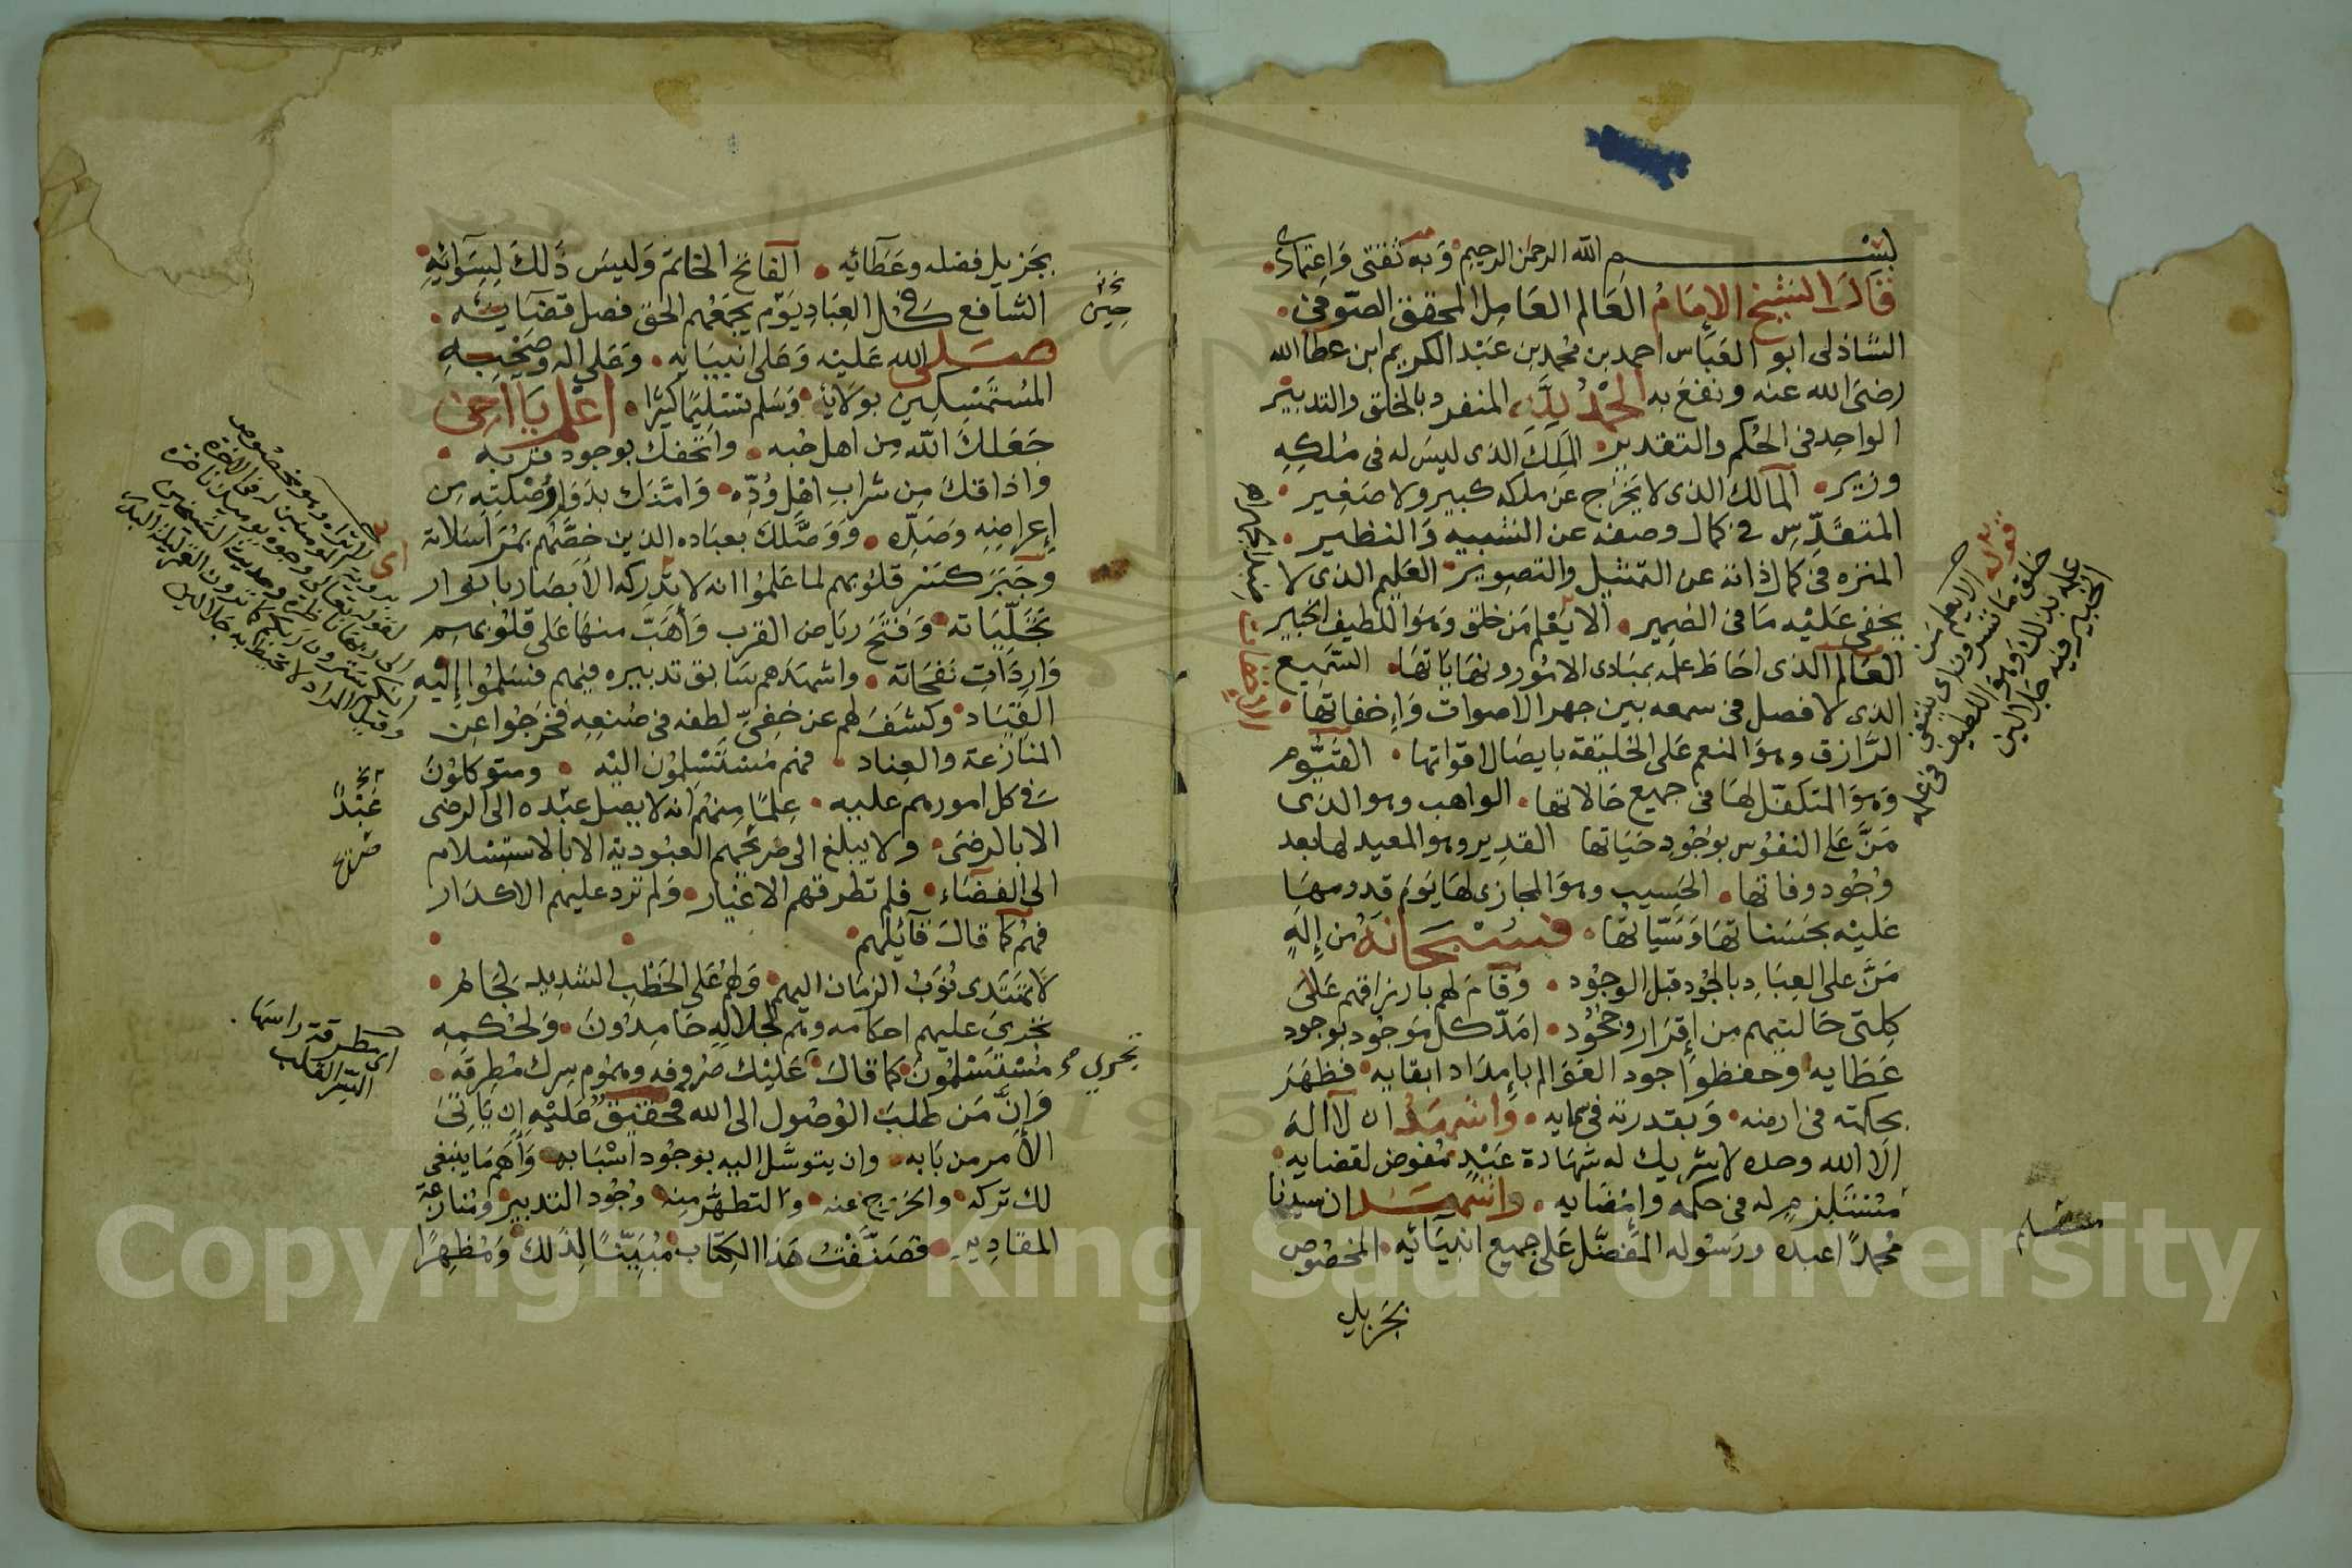 بسم الله الرحمن الرحيم وبه ثقتي واعتمادي
قال الشيخ الامام العالم العامل المحقق الصوفي
الشاذلى ابو العباس احمد بن محمد بن عبد الكريم ابن عطا الله
رضى الله عنه ونفع به الحمد لله المنفرد بالخلق والتدبير
الواحد فى الحكم والتقدير الملك الذى ليس له فى ملكه
وزير المالك الذى لا يخرج عن ملكه كبير ولا صغير
المتقدس فى كمال وصفه عن الشبيه والنظير
المنزه فى كمال ذاته عن التمثيل والتصوير العليم الذى لا
يخفى عليه ما فى الضمير الا يعلم من خلق وهو اللطيف الخبير
العالم الذى احاط علمه بمبادى الامور ونهاياتها السميع
الذى لا فصل فى سمعه بين جهر الاصوات وإخفاتها
الرازق وهو المنعم على الخليقة بايصال اقواتها القيوم
وهو المتكفل لها فى جميع حالاتها الواهب وهو الذى
من على النفوس بوجود حياتها القدير وهو المعيد لها بعد
وجود وفاتها الحسيب وهو المجازى لها يوم قدومها
عليه بحسناتها وسيّاتها فسبحانه من إله
من على العباد بالجود قبل الوجود وقام لهم بارزاقهم على
كلتى حالتيهم من إقرار وجحود امدّ كل موجود بوجود
عطايه وحفظ وجود العوالم بإمداد ابقايه فظهر
بحكمته فى ارضه وبقدرته فى سمايه واشهد ان لا اله
الا الله وحده لا شريك له شهادة عبد مفوض لقضايه
مستسلم له فى حكمه وامضايه واشهد ان سيدنا
محمدًا عبده ورسوله المفضل على جميع انبيائه المخصوص
بجزيل
قوله
الا يعلم من
خلق ما تسرون اى
علمه بذلك وهو اللطيف فى علمه
الخبير فيه جلالين
الإخفات
بجزيل فضله وعطائه الفاتح الخاتم وليس ذلك لسوائه
الشافع فى كل العباد يوم يجمعهم الحق لفصل قضايه
صلى الله عليه وعلى انبيايه وعلى اله وصحبه
المستمسكين بولايه وسلم تسليما كثيرا اعلم يا اخى
جعلك الله من اهل حبه واتحفك بوجود قربه
واذاقك من شراب اهل ودّه وامنك بدوام وصلته من
إعراضه وصدّه ووصّلك بعباده الذين خصهم بمراسلاته
وجبر كسر قلوبهم لما علموا انه لا تدركه الابصار بانوار
تجلّياته وفتح رياض القرب وأهبّ منها على قلوبهم
واردات نفحاته واشهدهم سابق تدبيره فيهم فسلموا إليه
القياد وكشف لهم عن خفىّ لطفه فى صنعه فخرجوا عن
المنازعة والعناد فهم مستسلمون اليه ومتوكلون
فى كل امورهم عليه علمًا منهم انه لا يصل عبده الى الرضى
الا بالرضى ولا يبلغ الى صريح العبودية الا بالاستسلام
الى القضاء فلم تطرقهم الاغيار ولم ترد عليهم الاكدار
فهم كما قال قائلهم
لا تهتدى نوب الزمان اليهم ولهم على الخطب الشديد لجام
تجرى عليهم احكامه وهم لجلاله خامدون ولحكمه
مستسلمون كما قال عليك صروفه وهموم سرك مطرقه
وإنّ من طلب الوصول الى الله فحقيق عليه ان ياتى
الامر من بابه وان يتوسّل اليه بوجود اسبابه وأهم ما ينبغى
لك تركه والخروج عنه والتطهر منه وجود التدبير ومنازعة
المقادير فصنّفت هذا الكتاب مبينًا لذلك ومظهرًا
حين
عبد
صريح
تجري
اى مطرقة راسها
السر القلب